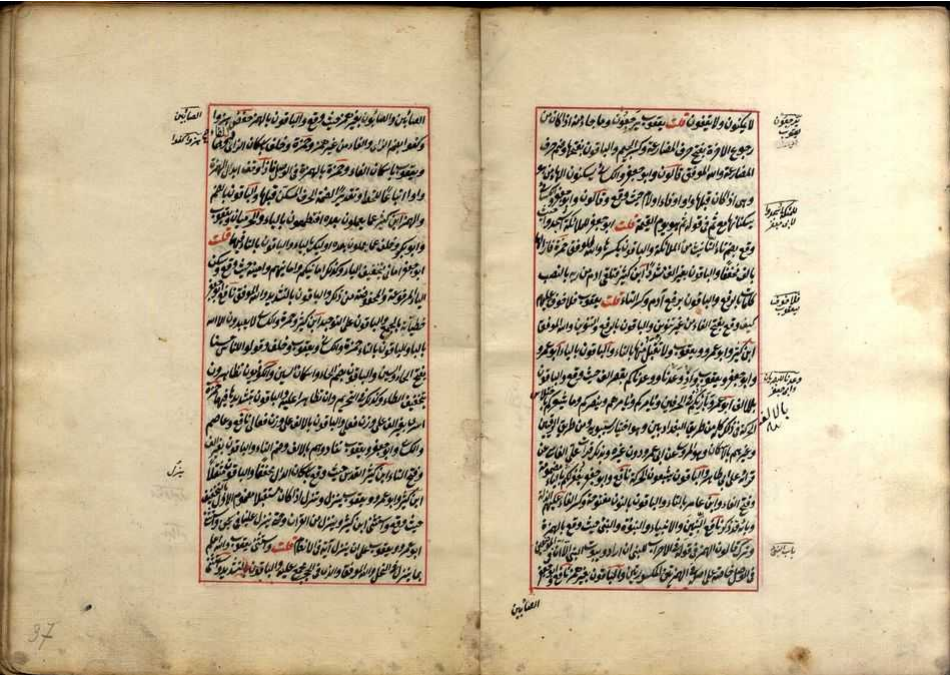 لا يكتبون ولا يتقون قلت يعقوب يرجعون وما جاء منه اذا كان من
رجوع الاخرة بفتح حرف المضارعة وكسر الجيم والباقون بضمها وفتح حرف
المضارعة والله الموفق قالون وابو عمرو والكسائي يسكنون الهاء من هو
وهي اذا كان قبلها واو او فاء او لام حيث وقع وقالون وابو جعفر والكسائي
يسكنانها مع ثم في قوله ثم هو يوم القيمة قلت ابو جعفر للملائكة اسجدوا حيث
وقع بضم تاء التانيث من الملائكة والباقون بكسرها والله الموفق حمزة فازالهما
بالف مخففا والباقون بغير الف مشددا ابن كثير فتلقى ادم من ربه بالنصب
كلمات بالرفع والباقون برفع آدم وكسر التاء قلت يعقوب فلا خوف عليهم
كيف وقع بفتح الفاء من غير تنوين والباقون بالرفع والتنوين والله الموفق
ابن كثير وابو عمرو ويعقوب ولا تقبل منها بالتاء والباقون بالياء ابو عمرو
وابو جعفر ويعقوب واذ وعدنا ووعدناكم بغير الف حيث وقع والباقون
بالالف ابو عمرو بارئكم في الحرفين ويأمركم ويأمرهم وينصركم وما يشعركم باختلاس
الحركة في ذلك كله من طريق البغداديين وهو اختيار سيبويه ومن طريق الرقيين
وغيرهم بالاسكان وهو المروي عن ابي عمرو دون غيره وبذلك قرأت على الفارسي من
قراءته على ابي طاهر والباقون يشبعون الحركة نافع وابو جعفر يغفر لكم بالياء مضمومة
وفتح الفاء وابن عامر بالتاء والباقون بالنون مفتوحة وكسر الفاء
نافع النبيين والانبياء والنبوة والنبي حيث وقع بالهمزة
وترك قالون الهمز في قوله في الاحزاب للنبي ان اراد وبيوت النبي الا ان في الموضعين
في الوصل خاصة على اصله في الهمزتين المكسورتين والباقون بغير همز نافع وابو جعفر
الصابئين
يرجعون
يعقوب
للملائكة اسجدوا
لابي جعفر
فلا خوف
ليعقوب
بالالف
باب النبي
الصابين والصابون بغير همز حيث وقع والباقون بالهمز حفص هزوا
وكفوا بضم الزاي والفاء من غير همز وحمزة وخلف باسكان الزاي فيهما
ويعقوب باسكان الفاء وحمزة بالهمزة في الوصل فاذا وقف ابدل الهمزة
واوا اتباعا للخط وتقديرا لضمة الحرف المسكن قبلها والباقون بالضم
والهمز ابن كثير عما يعملون بعده افتطمعون بالياء والحرميان ويعقوب
وابو بكر وخلف عما يعملون بعده اولئك بالياء والباقون بالتاء فيهما قلت
ابو جعفر اماني بتخفيف الياء وكذلك امانيكم وامانيهم وامنيته حيث وقع وسكن
الياء المرفوعة والمخفوضة من ذلك والباقون بالتشديد والله الموفق نافع وابو جعفر
خطيئاته بالجمع والباقون على التوحيد ابن كثير وحمزة والكسائي لا يعبدون الا الله
بالياء والباقون بالتاء حمزة والكسائي ويعقوب وخلف وقولوا للناس حسنا
بفتح الحاء والسين والباقون بضم الحاء واسكان السين والكوفيون تظاهرون
بتخفيف الظاء وكذلك في التحريم وان تظاهرا عليه والباقون بتشديدها فيهما حمزة
اسرى بغير الف على وزن فعلى والباقون بالالف على وزن فعالى نافع وعاصم
والكسائي وابو جعفر ويعقوب تفادوهم بالالف وضم التاء والباقون بغير الف
وفتح التاء ابن كثير القدس حيث وقع باسكان الدال مخففا والباقون مثقلا
ابن كثير وابو عمرو ويعقوب ينزل وتنزل اذا كان مستقبلا مضموم الاول بالتخفيف
حيث وقع واستثنى ابن كثير وننزل من القرآن وحتى تنزل علينا في سبحان واستثنى
ابو عمرو ويعقوب على ان ينزل آية في الانعام قلت واستثنى يعقوب والله اعلم
بما ينزل في النحل والله الموفق والذي في الحجر مجمع عليه والباقون بالتشديد
الصابين
هزوا كفوا
ينزل
37